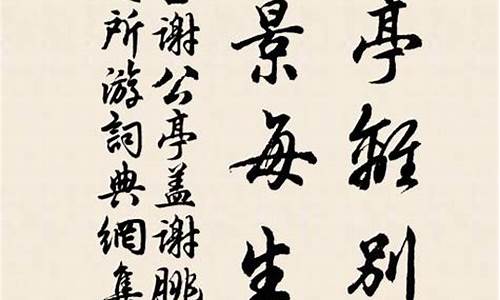 亭離別
景每生
謝公亭盖謝朓
所游詞典網集